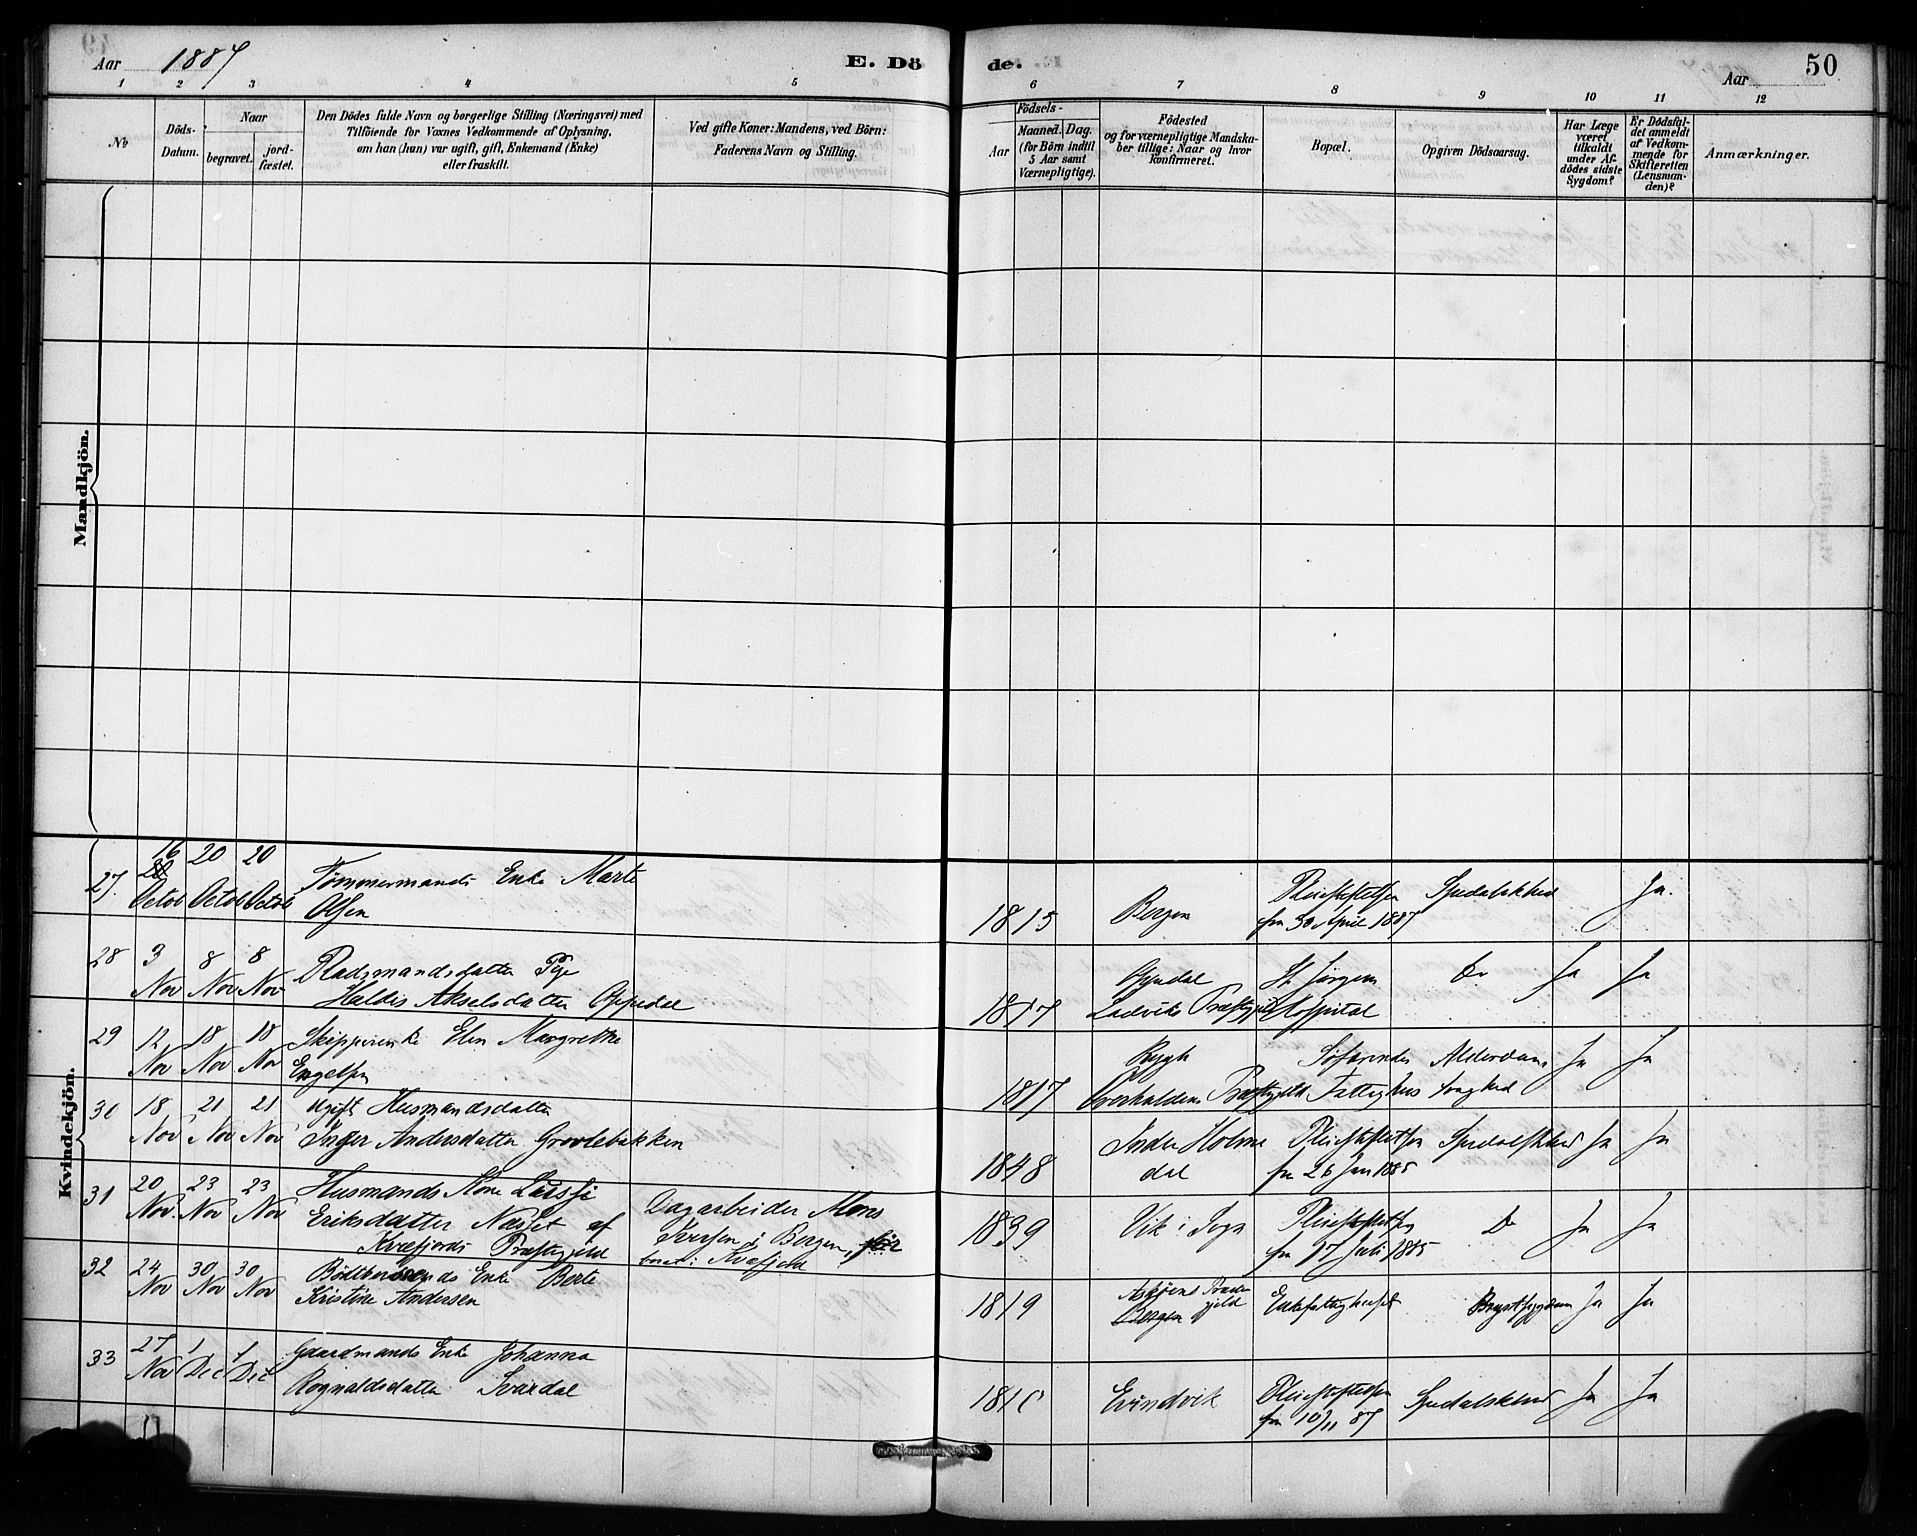 Aar 1887
E. Dö
de.
Aar
50
1 2 3 4 5 6 7 8 9 10 11 12
No
Döds-
Datum.
Naar
begravet.
jord-
fæstet.
Den Dödes fulde Navn og borgerlige Stilling (Næringsvei) med
Tilföiende for Voxnes Vedkommende af Oplysning,
om han (hun) var ugift, gift, Enkemand (Enke)
eller fraskilt.
Ved gifte Koner: Mandens, ved Börn:
Faderens Navn og Stilling.
Födsels-
Aar
Maaned. Dag.
(for Börn indtil
5 Aar samt
Værnepligtige).
Födested
og for værnepligtige Mandska-
ber tillige: Naar og hvor
konfirmeret.
Bopæl.
Opgiven Dödsaarsag.
Har Læge
været
tilkaldt
under Af-
dödes sidste
Sygdom?
Er Dödsfal-
det anmeldt
af Vedkom-
mende for
Skifteretten
(Lensman-
den)?
Anmærkninger.
Mandkjön.
Kvindekjön.
27. 16 Octob 20 Octob 20 Octob
Tømmermands Enke Marte
Olsen
1815
Bergen
Pleiestiftelsen
fra 30 April 1887
Spedalskhed
Ja.
28 3 Nov 8 Nov 8 Nov
Pladsmandsdatter Pige
Haldis Akselsdatter Oppedal
1817
Oppedal
Ladviks Præstegjeld
St Jørgens
Hospital
Do
Ja
Ja
29 12 Nov 18 Nov 18 Nov
Skipperenke Elen Margrethe
Engelsen
1817
Overhaldens Præstegjeld
Søfarendes
Fattighus
Alderdoms
svaghed
Ja
Ja
30 18 Nov 21 Nov 21 Nov
Ugift Husmandsdatter
Inger Andersdatter Grovlebakken
1848
Indre Holme
dal
Pleiestiftelsen
fra 26 Jan 1885
Spedalskhed
Ja
Ja
31 20 Nov 23 Nov 23 Nov
Husmands Kone
Eriksdatter Næsset af
Kvæfjords Præstegjeld
Dagarbeider Mons
Iversen i Bergen, før
boat i Kvæfjord
1839
Vik i Sogn
Pleiestiftelsen
fra 17 Juli 1885
Do
Ja
Ja
32 24 Nov 30 Nov 30 Nov
Bödkersvends Enke Berte
Kristine Andersen
1819
Askøens Præste
gjeld
Bergen
Enkefattighuset
Brystsygdom
Ja
Ja
33 27 Nov 1 Dec 1 Dec
Gaardmands Enke Johanna
Rognaldsdatter Svardal
1810
Evindvik
Pleiestiftelsen
fra 10/11 87
Spedalskhed
Ja
Ja